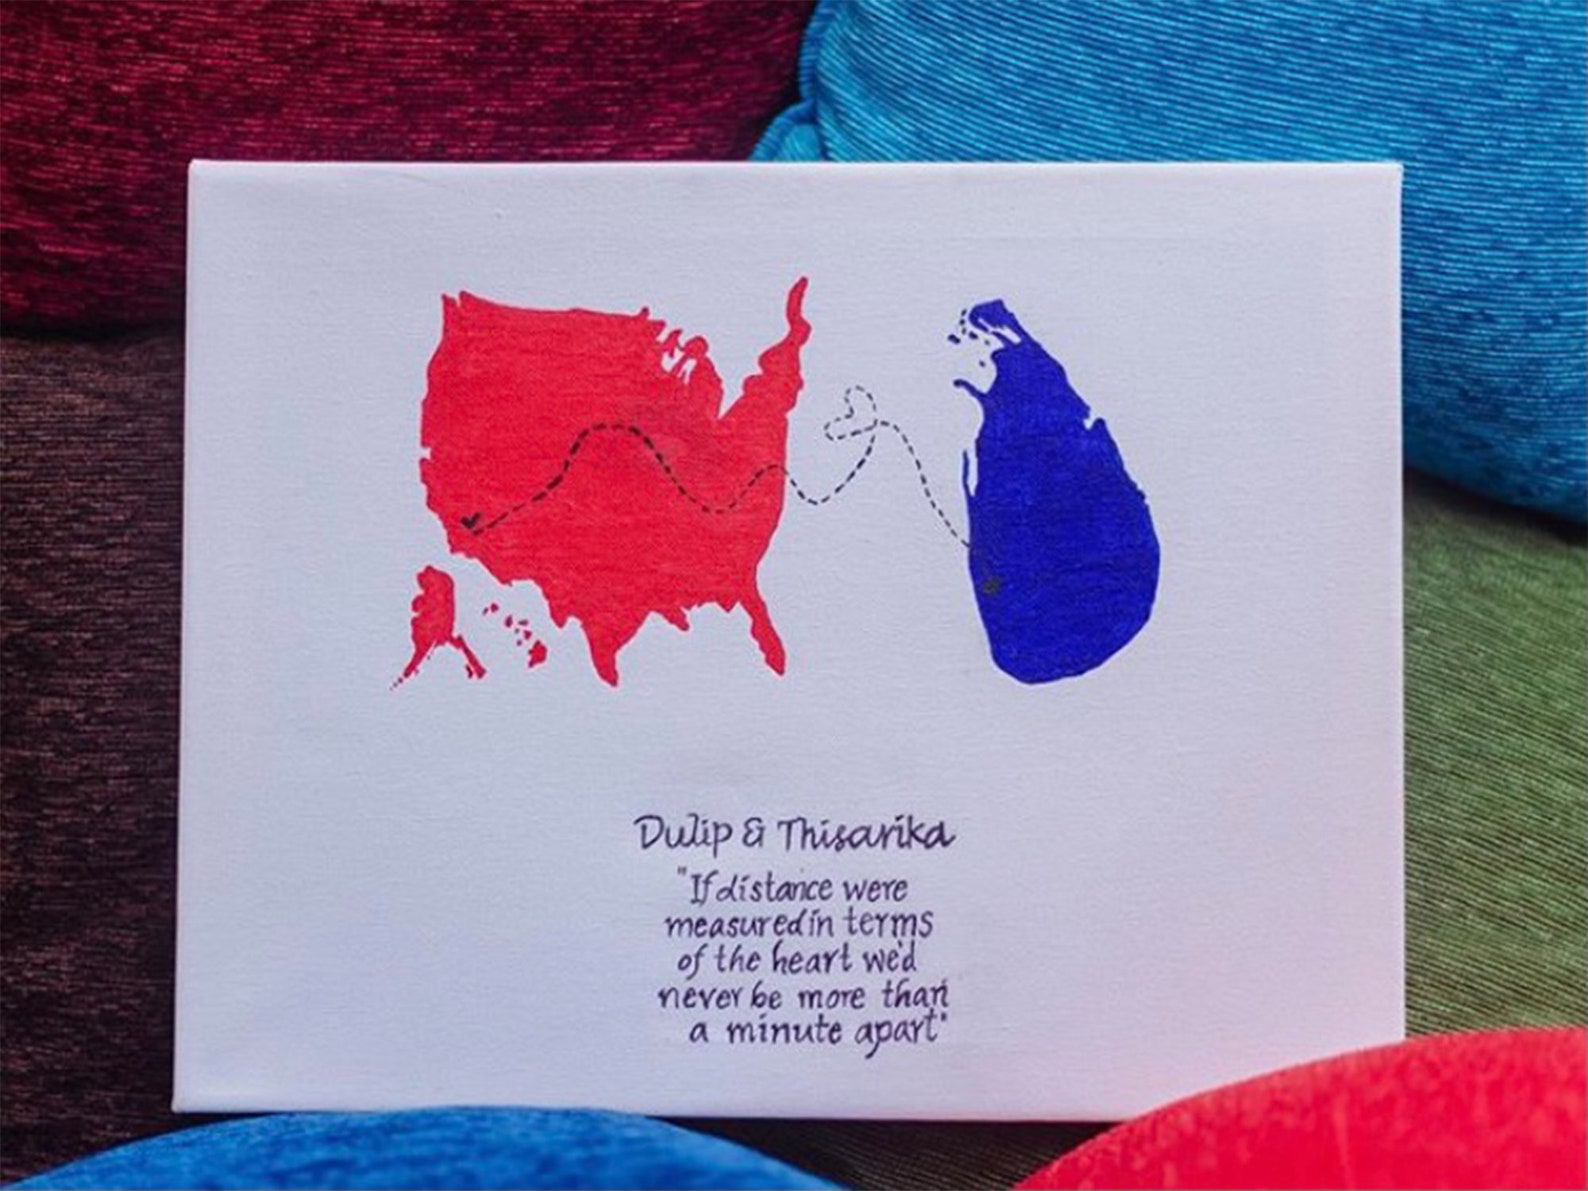 Dulip & Thisarika
"If distance were
measured in terms
of the heart we'd
never be more than
a minute apart"